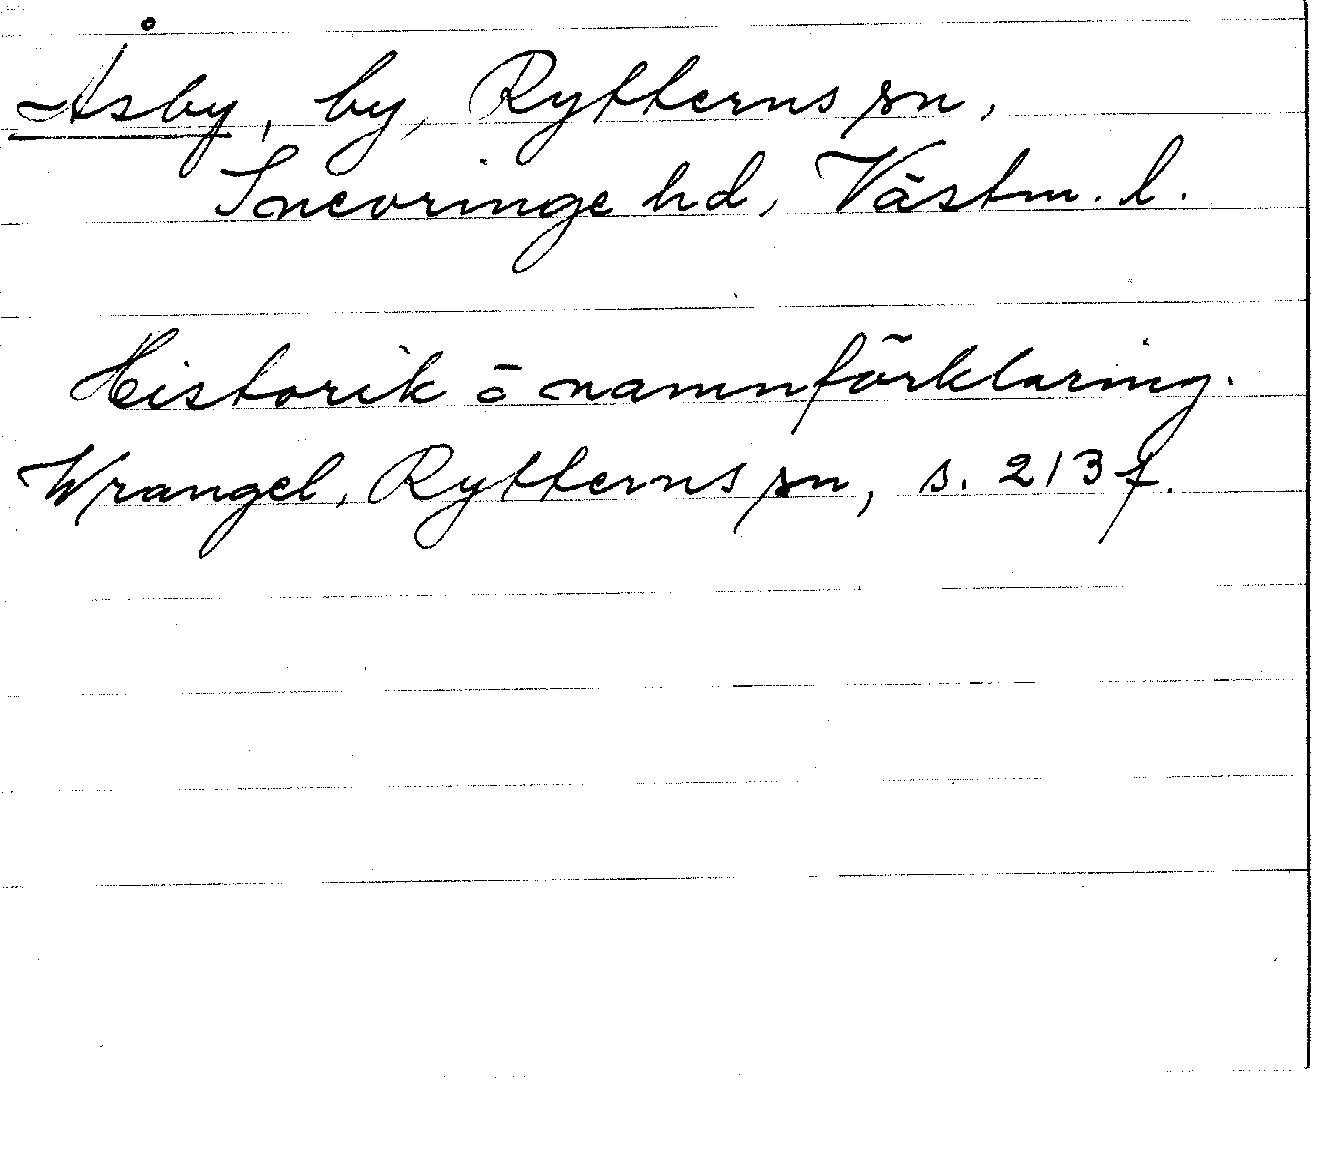 Åsby, by, Rytterns sn,
Snevringe hd, Västm. l.
Historik o namnförklaring.
Wrangel, Rytterns sn, s. 213 f.